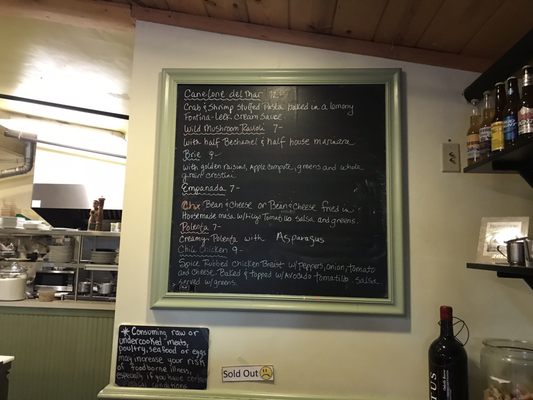 Canelone del Mar
Crab & Shrimp Stuffed Pasta baked in a lemony
Fontina-Leek Cream Sauce
Wild Mushroom Ravioli 7-
with half Bechamel & half house marinara
Brie 9-
with golden raisins, Apple compote, greens and whole
grain crostini
Empanada 7-
Chix Bean & cheese or Bean & cheese fried in
Housemade masa w/ Tomatillo salsa and greens.
Polenta 7-
Creamy Polenta with Asparagus
Chile Chicken 9-
Spice Rubbed Chicken Breast w/ peppers, onion, tomato
and cheese Baked & topped w/ Avocado tomatillo salsa
served w/ greens.
* Consuming raw or
undercooked meats,
poultry, seafood or eggs
may increase your risk
of foodborne illness,
especially if you have certain
medical conditions
Sold Out
TUS